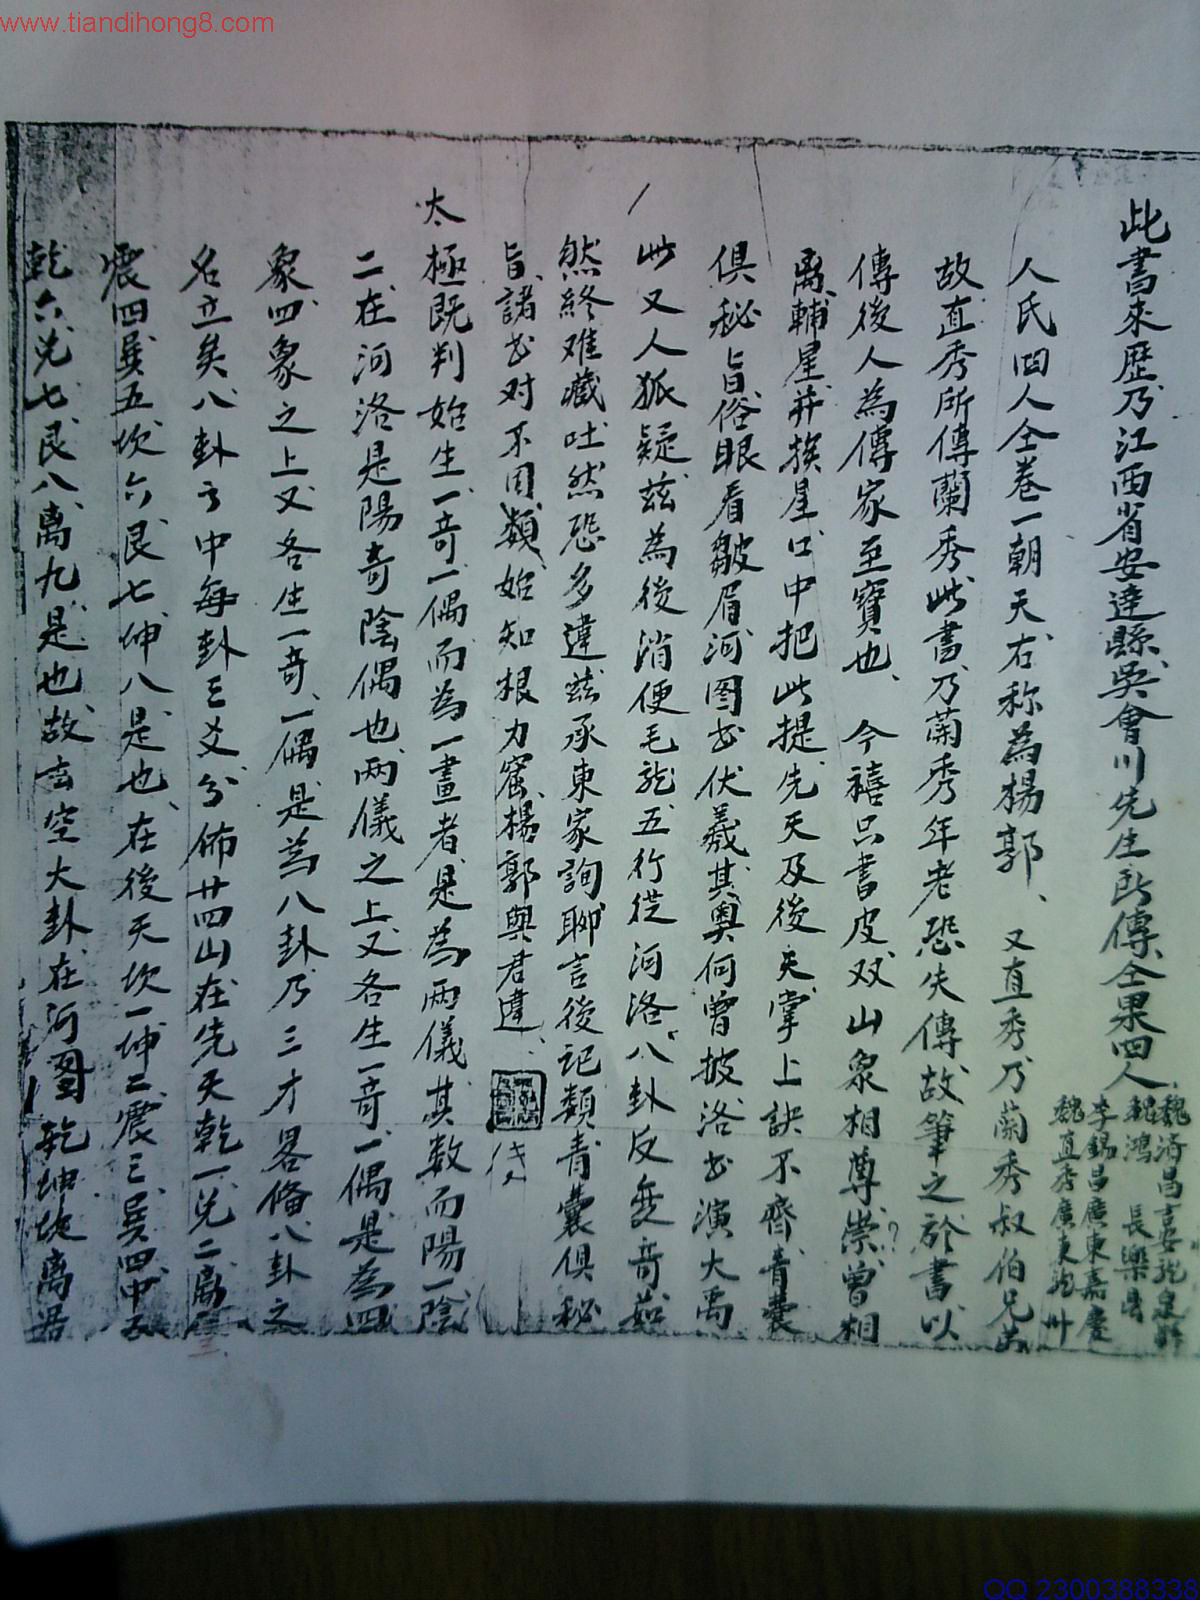 www.tiandihong8.com
此書來歷乃江西省安達縣吳會川先生所傳仝果四人
魏濟昌吉安龍泉
魏鴻 長樂縣
李錫昌廣東嘉慶
魏直秀廣東龍川
人氏四人仝卷一朝天右称為楊郭、又直秀乃蘭秀叔伯兄弟
故直秀所傳蘭秀此書乃蘭秀年老恐失傳故筆之於書以
傳後人為傳家至寶也、今禧只書皮双山泉相尊崇?曾相
离輔星并挨星口中把此提先天及後天掌上訣不齊青囊
俱秘旨俗眼看皺眉河图书伏羲其奧何曾披洛书演大禹
此又人狐疑茲為後消便毛龍五行從河洛八卦反变奇茹
然終难藏吐然恐多違茲承東家詢聊言後記類青囊俱秘
旨諸书对不同類始知根力窟楊郭與君違、
太極既判始生一奇一偶而為一畫者是為兩儀其数而陽一陰
二在河洛是陽奇陰偶也两儀之上又各生一奇一偶是為四
象四象之上又各生一奇、一偶是為八卦乃三才畧俻八卦之
名立矣八卦之中每卦三爻分佈廿四山在先天乾一兑二离三
震四巽五坎六艮七坤八是也、在後天坎一坤二震三巽四中五
乾六兑七艮八离九是也故玄空大卦在河图乾坤坎离居
QQ 2300388338